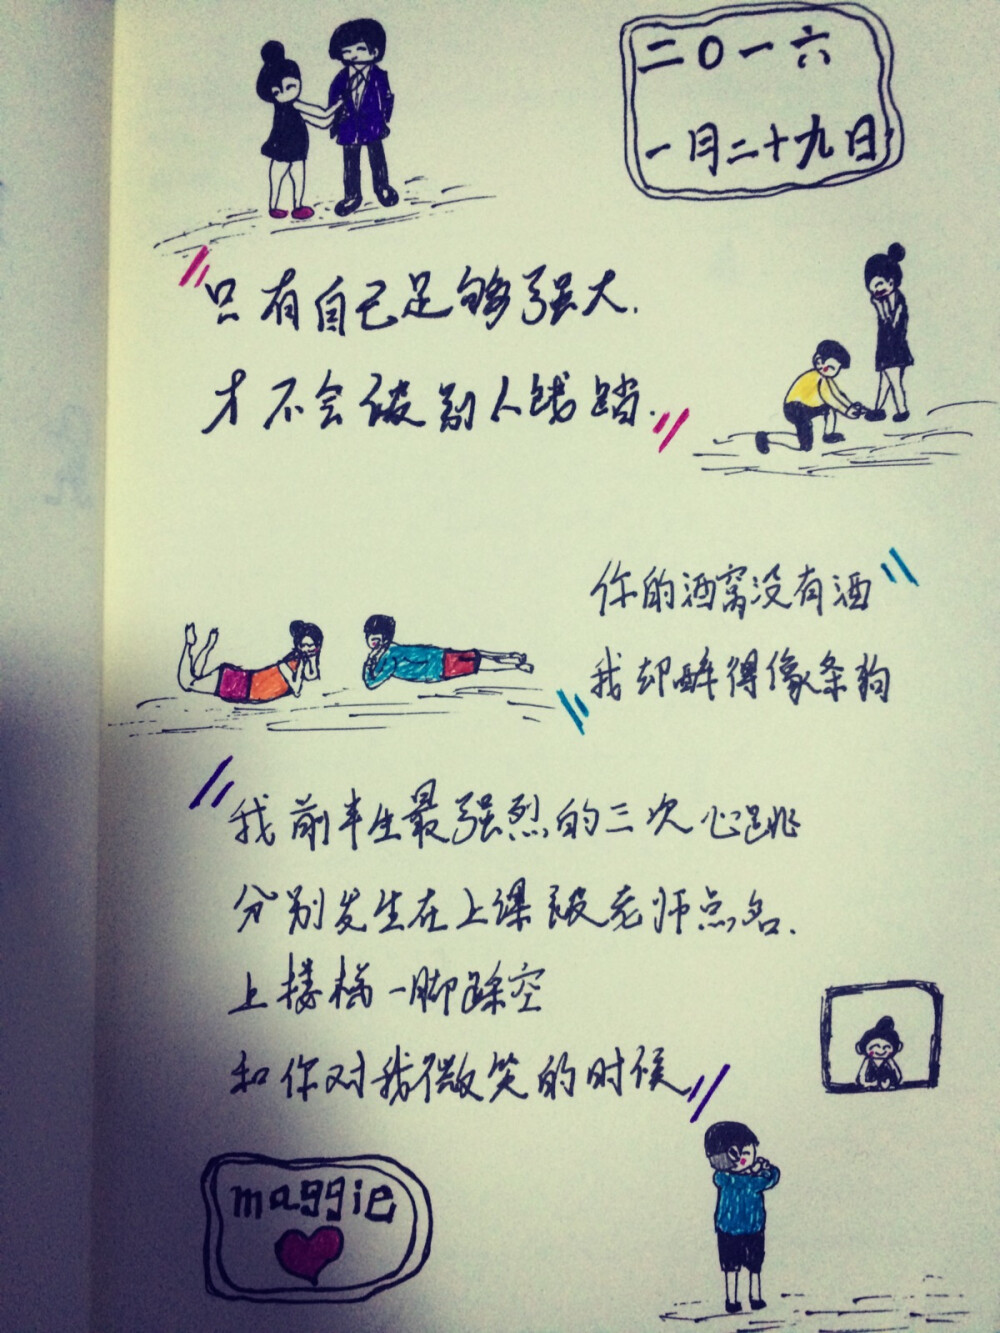 二〇一六
一月二十九日
"只有自己足够强大.
才不会被别人践踏."
你的酒窝没有酒"
"我却醉得像条狗
"我前半生最强烈的三次心跳
分别发生在上课被老师点名.
上楼梯一脚踩空
和你对我微笑的时候"
maggie